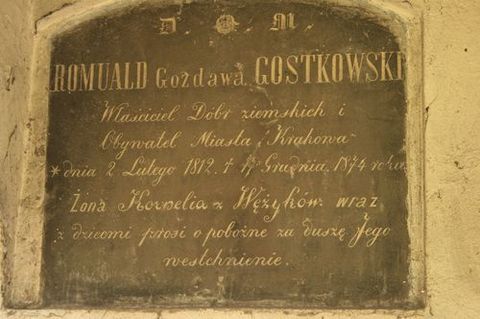 D. O. M.
ROMUALD Gozdawa GOSTKOWSKI
Właściciel Dóbr ziemskich i
Obywatel Miasta Krakowa
* dnia 2 Lutego 1812 † Grudnia 1874 roku
Żona Kornelia z Wężyków wraz
z dziećmi prosi o pobożne za duszę Jego
westchnienie.